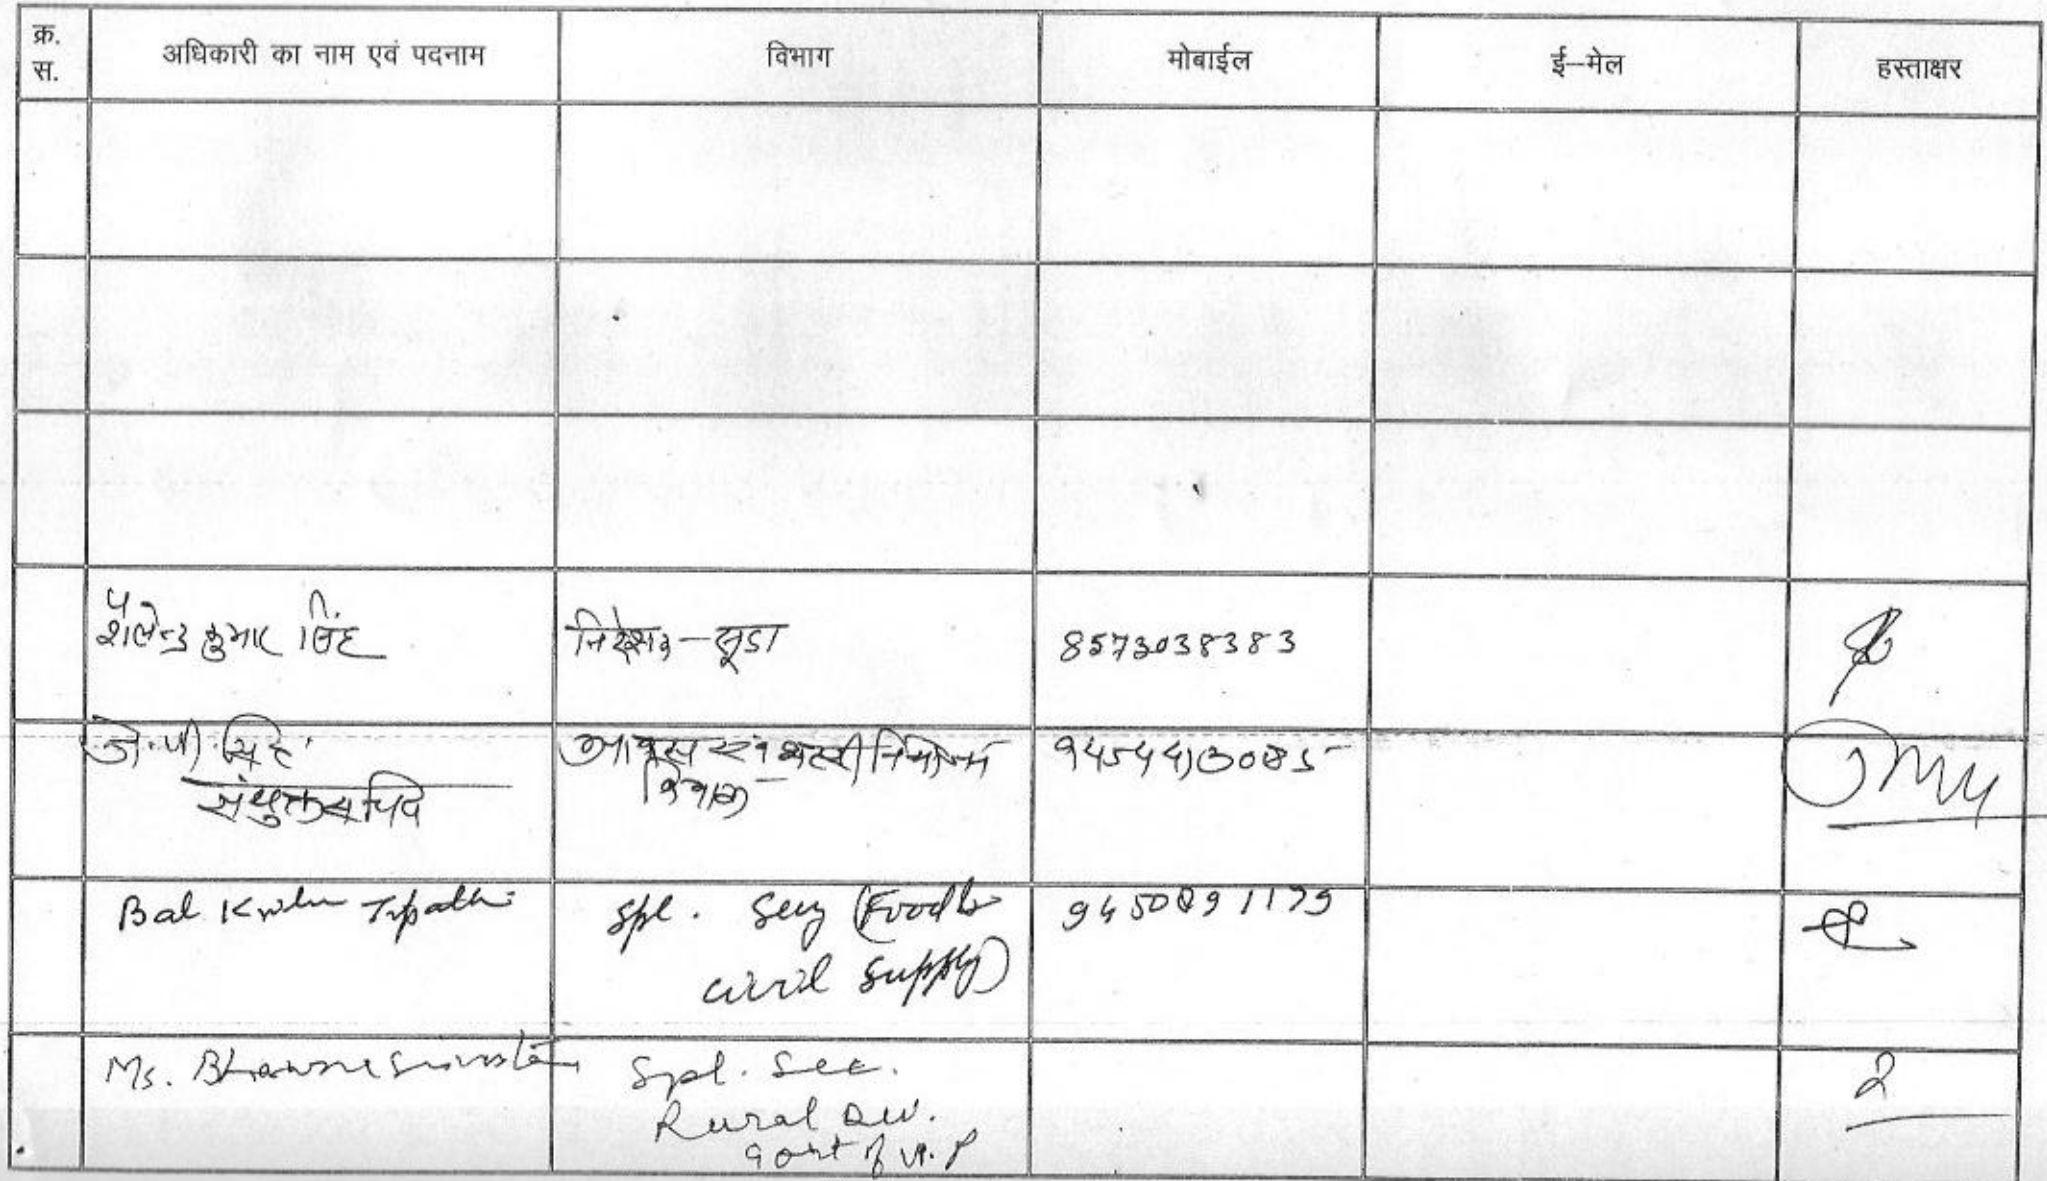 क्र. स. अधिकारी का नाम एवं पदनाम विभाग मोबाईल ई–मेल हस्ताक्षर
शैलेन्द्र कुमार सिंह निदेशक – सूडा 8573038383
जे. पी. सिंह आवास एवं शहरी नियोजन
संयुक्त सचिव विभाग
Bal Tripathi Spl. Secy (Food &
civil supply)
Ms. Bhawna Srivastava Spl. Sec.
Rural Dev.
Govt of U.P